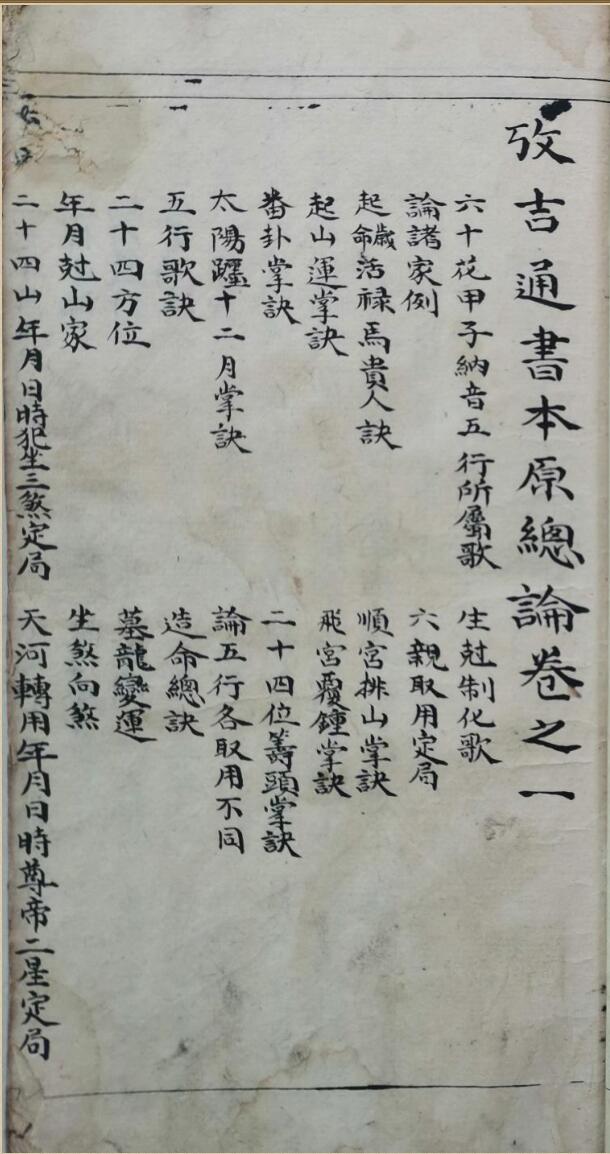 攷吉通書本原總論卷之一
六十花甲子納音五行所屬歌 生尅制化歌
論諸家例 六親取用定局
起歲命活祿馬貴人訣 順宮排山掌訣
起山運掌訣 飛宮覆鐘掌訣
番卦掌訣 二十四位籌頭掌訣
太陽躔十二月掌訣 論五行各取用不同
五行歌訣 造命總訣
二十四方位 墓龍變運
年月尅山家 坐煞向煞
二十四山年月日時犯坐三煞定局 天河轉用年月日時尊帝二星定局